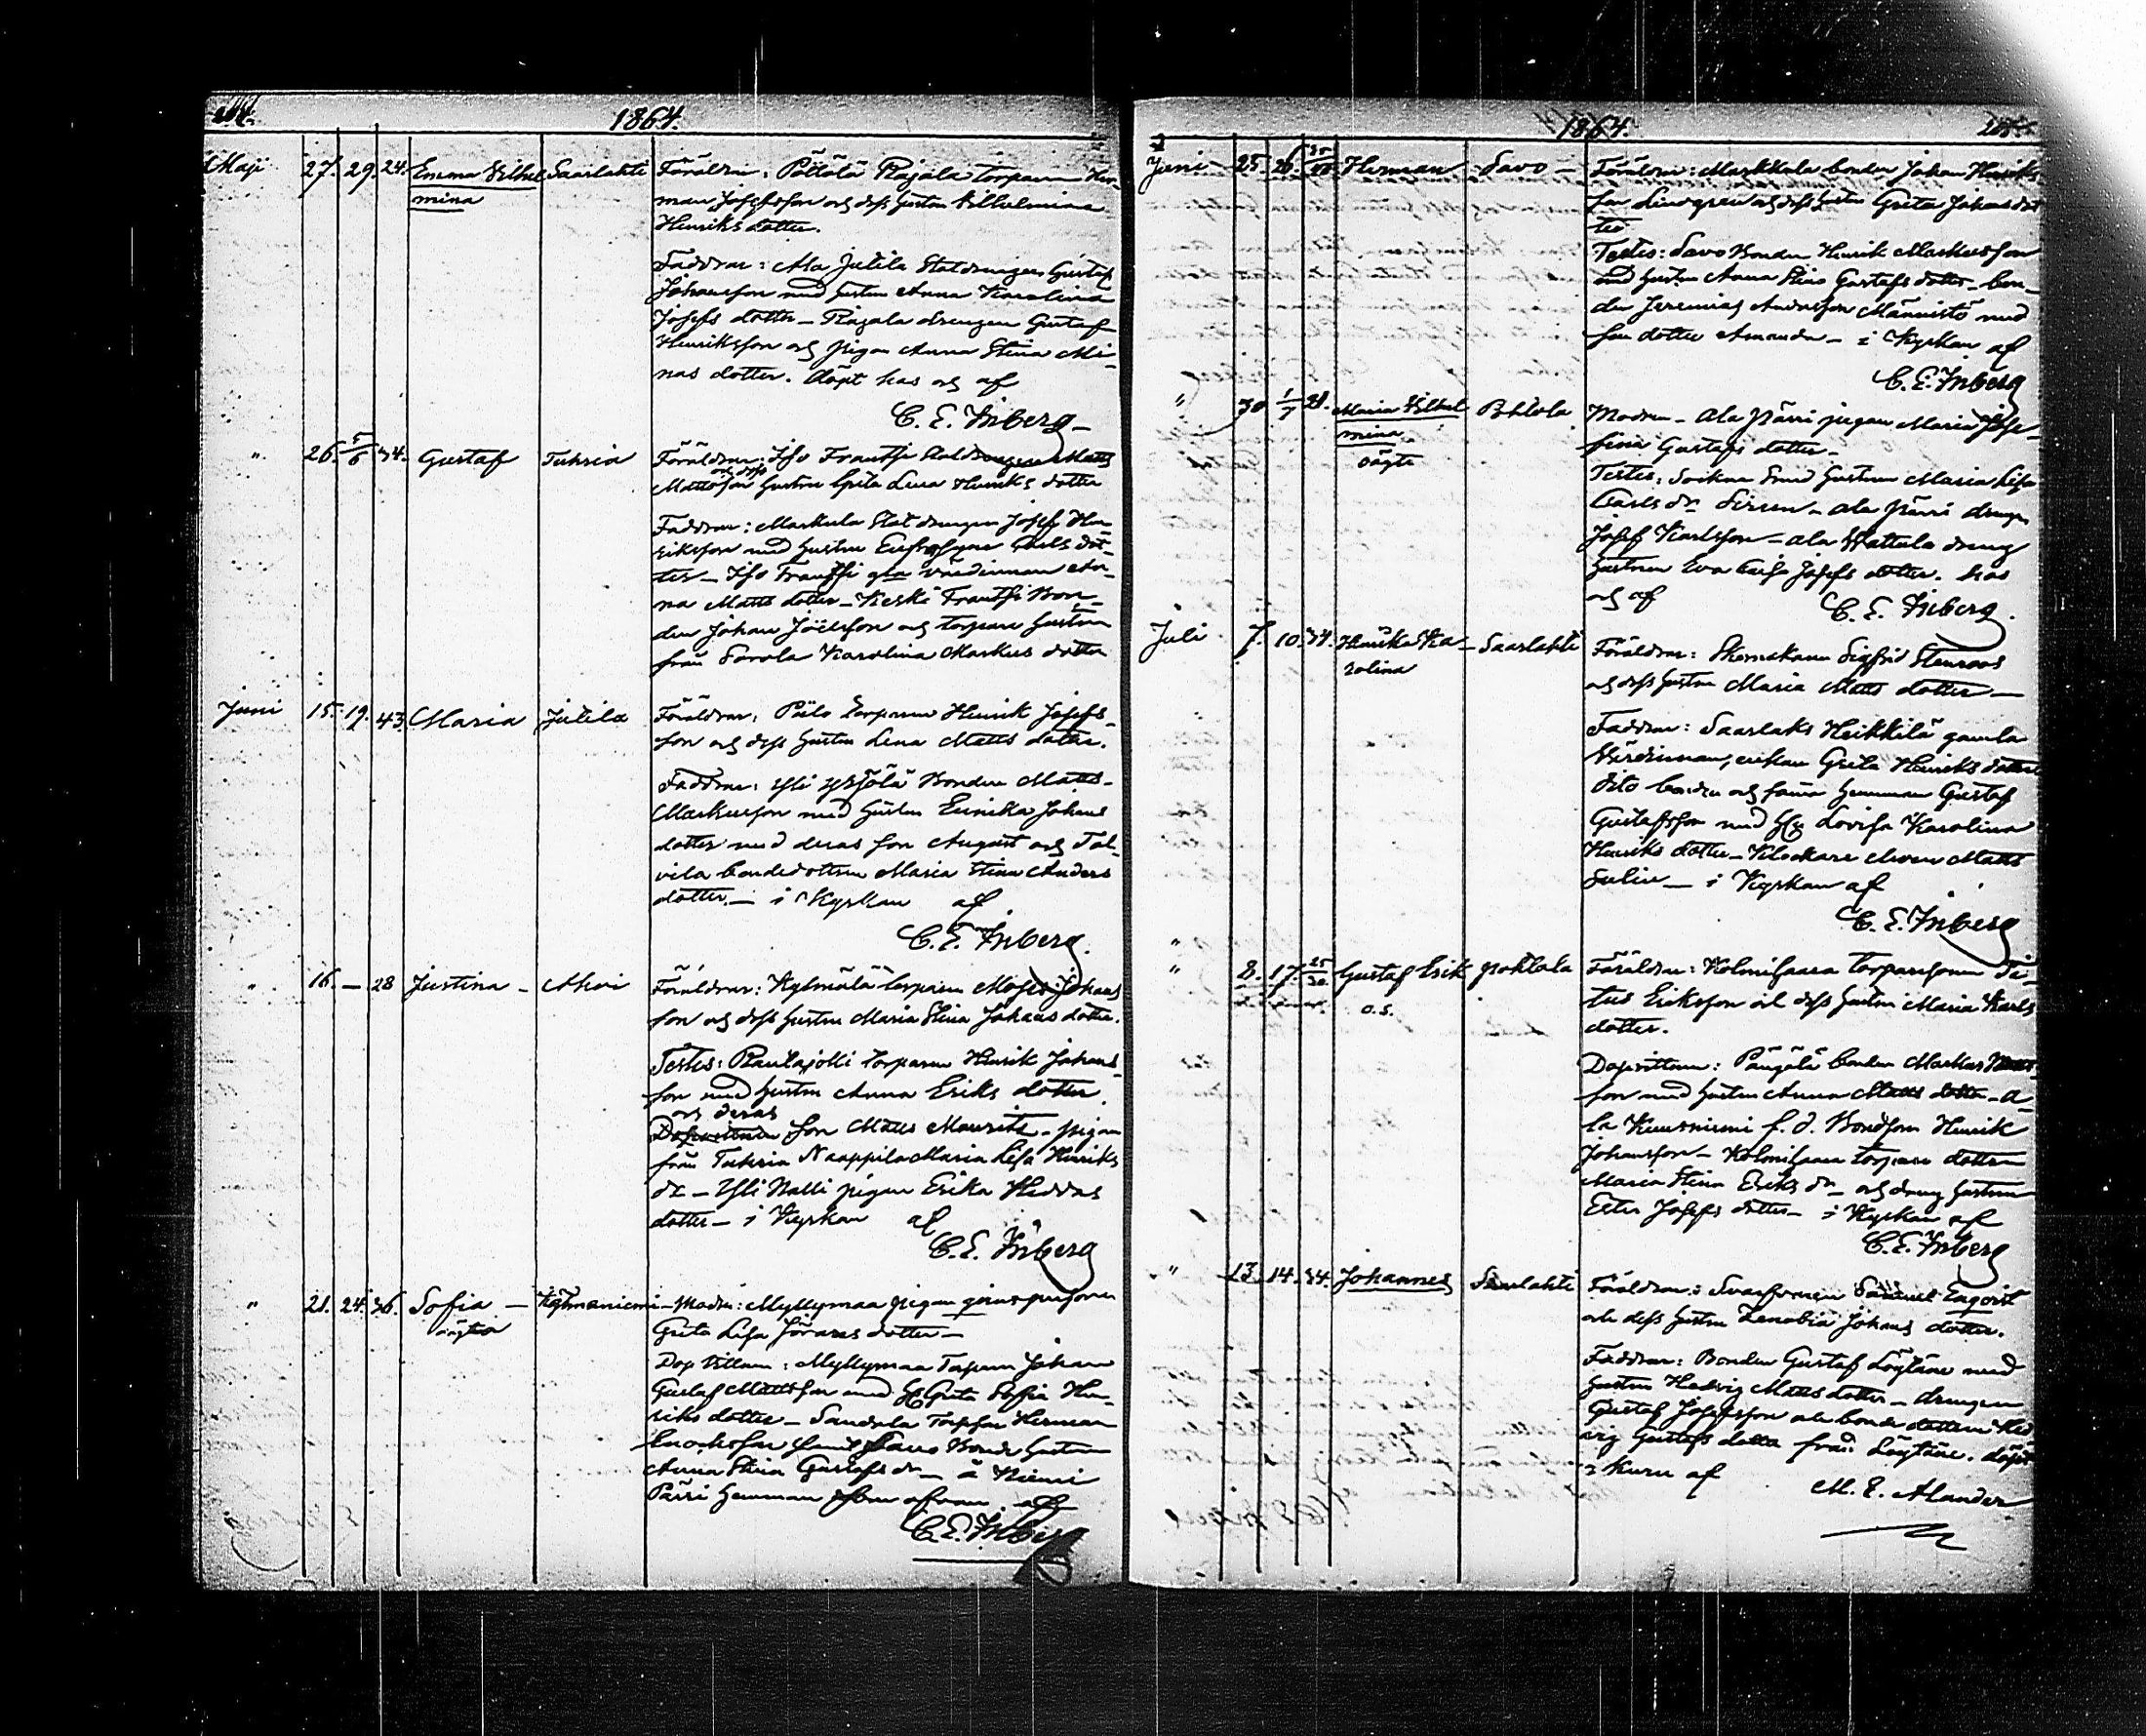 1864.
Maji 27. 29. 24. Emma Vilhel Saarlahti Föräldrar: Pöllölä Rajala torparen Her-
mina man Josefsson och dess hustru Vilhelmina
Henriks dotter.
Faddrar: Ala Jutila Statdrängen Gustaf
Johansson med hustru Anna Karolina
Josefs dotter – Rajala drengen Gustaf
Henriksson och pigan Anna Stina
nas dotter. döpt hos och af
C. E. Inberg –
" 26. 5/6 34. Gustaf Tuhria Föräldrar: Iso Frantsi Statdrengen Matts
och dess
Mattsson hustru Greta Lena Henriks dotter
Faddrar: Markula Statdrengen Josef Hen-
riksson med hustru Eufrosyne Carls dot-
ter – Iso Frantsi gla värdinnan An-
na Matts dotter – Keski Frantsi Bon-
den Johan Joelsson och torpare hustrun
från Sorola Karolina Markus dotter
Juni 15. 19. 43. Maria Jutila Föräldrar: Torparen Henrik Josefs-
son och dess hustru Lena Matts dotter.
Faddrar: Yli Yrjölä Bonden Matts
Markusson med hustru Eerika Johans
dotter med deras son August och Tol-
vila bondedottren Maria Stina Anders
dotter. – i Kyrkan af
C. E. Inberg.
" 16. – 28 Justina – Ahoi Föräldrar: Kylmälä torparen Moses Johans
son och dess hustru Maria Stina Johans dotter.
Testes: Rautajoki torparen Henrik Johans-
son med hustru Anna Eriks dotter,
och deras
son Matts Maurits – pigan
från Tuhria Naappila Maria Lisa Henriks
dr – Yli Nalli pigan Erika Heddas
dotter – i Kyrkan af
C. E. Inberg
" 21. 24. 36. Sofia – Kyhmäniemi – Modren: Myllymaa pigan
oägta Greta Lisa dotter –
Dop vittnen: Myllymaa Torparen Johan
Gustaf Mattsson med Greta Sofia Hen-
riks dotter – Torpson Herman
Enochsson samt Savo Bonde hustrun
Anna Stina Gustafs dr – å Niemi
Pärri hemman som ofvan af
C. E. Inberg
1864.
Juni 25. 26. Herman – Savo – Föräldrar: Markkula bonden Johan Henriks
son Lindgren och dess hustru Greta Johans dot
ter
Testes: Savo Bonden Henrik Markusson
med hustru Anna Stina Gustafs dotter – bon-
den Jeremias Andersson Männistö med
son dotter Amanda – i Kyrkan af
C. E. Inberg
" 30 1/7 21. Maria Vilhel Pohlola Modren – Ala Pärri pigan Maria Jose-
mina fina Gustafs dotter –
oägta Testes: Sockne Smed hustrun Maria Lisa
Carls dr Siren – ala Pärri dreng
Josef Karlsson – ala Wattula dreng
hustrun Eva Caisa Josefs dotter. hos
och af C. E. Inberg.
Juli 7. 10. 34. Henrika Ka- Saarlahti Föräldrar: Skomakarn Sigfrid Stenroos
rolina och dess hustru Maria Matts dotter –
Faddrar: Saarlaks Heikkilä gamla
Värdinnan, enkan Greta Henriks dotter
dito bonden och samma hemman Gustaf
Gustafsson med Lovisa Karolina
Henriks dotter – Klockare eleven Matts
– i Kyrkan af
C. E. Inberg
" 8. 17. 25/30 Gustaf Erik Pohlola Föräldrar: Kolmihaara torparesonen Ti-
o.ä. tus Eriksson och dess hustru Maria Karls
dotter.
Dopvittnen: Pängälä bonden Markus
son med hustru Anna Matts dotter – a-
la Kuusniemi f. d. Bondson Henrik
Johansson – Kolmihaara torpare dottren
Maria Stina Eriks dr – och dreng hustrun
Ester Josefs dotter – i Kyrkan af
C. E. Inberg
" 13. 14. 34. Johannes Saarlahti Föräldrar: Svarfvaren Samuel Enqvist
och dess hustru Zenobia Johans dotter.
Faddrar: Bonden Gustaf Löytäne med
hustru Hedvig Matts dotter – drengen
Gustaf Josefsson och bonde dottren Hed
vig Gustafs dotter från Löytäne. döpt
i Kuru af M. E. Alander